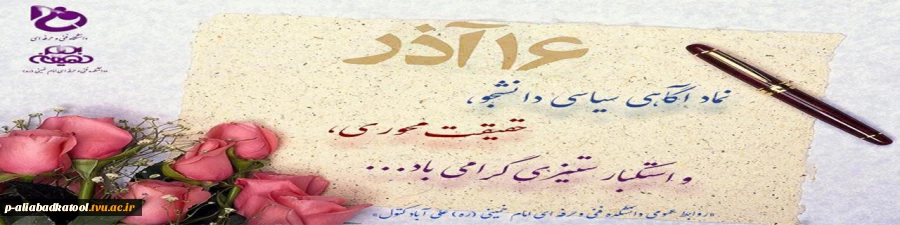 ۱۶ آذر
نماد آگاهی سیاسی دانشجو،
حقیقت محوری،
و استکبار ستیزی گرامی باد...
«روابط عمومی دانشکده فنی و حرفه ای امام خمینی (ره) علی آباد کتول»
دانشگاه فنی و حرفه ای
دانشکده فنی و حرفه ای امام خمینی (ره)
p-aliabadkatool.tvu.ac.ir